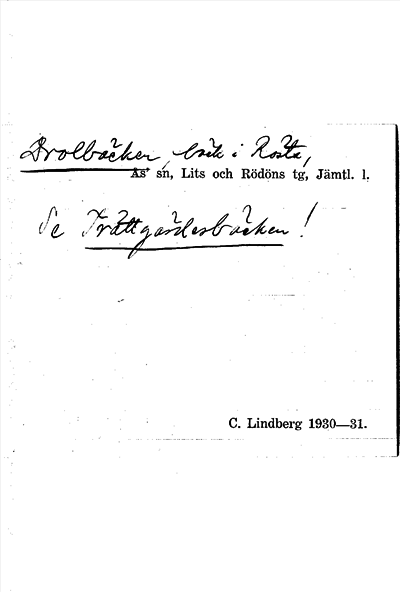 Drolbäcken, bäck i Rösta,
Ås sn, Lits och Rödöns tg, Jämtl. l.
Se Trättgärdesbäcken!
C. Lindberg 1930—31.